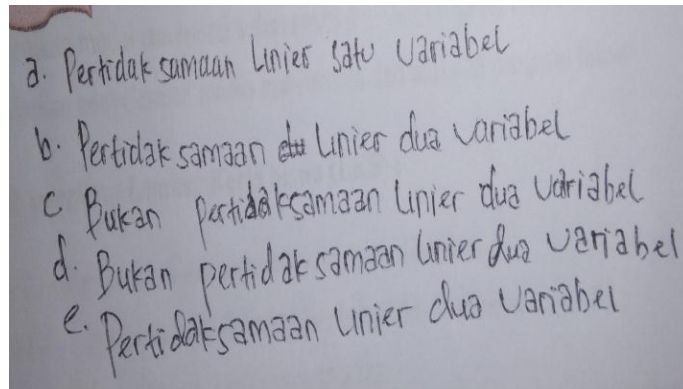 a. Pertidak samaan Linier satu variabel
b. Pertidak samaan linier dua variabel
c Bukan pertidaksamaan linier dua variabel
d. Bukan pertidaksamaan linier dua variabel
e. Pertidaksamaan linier dua variabel